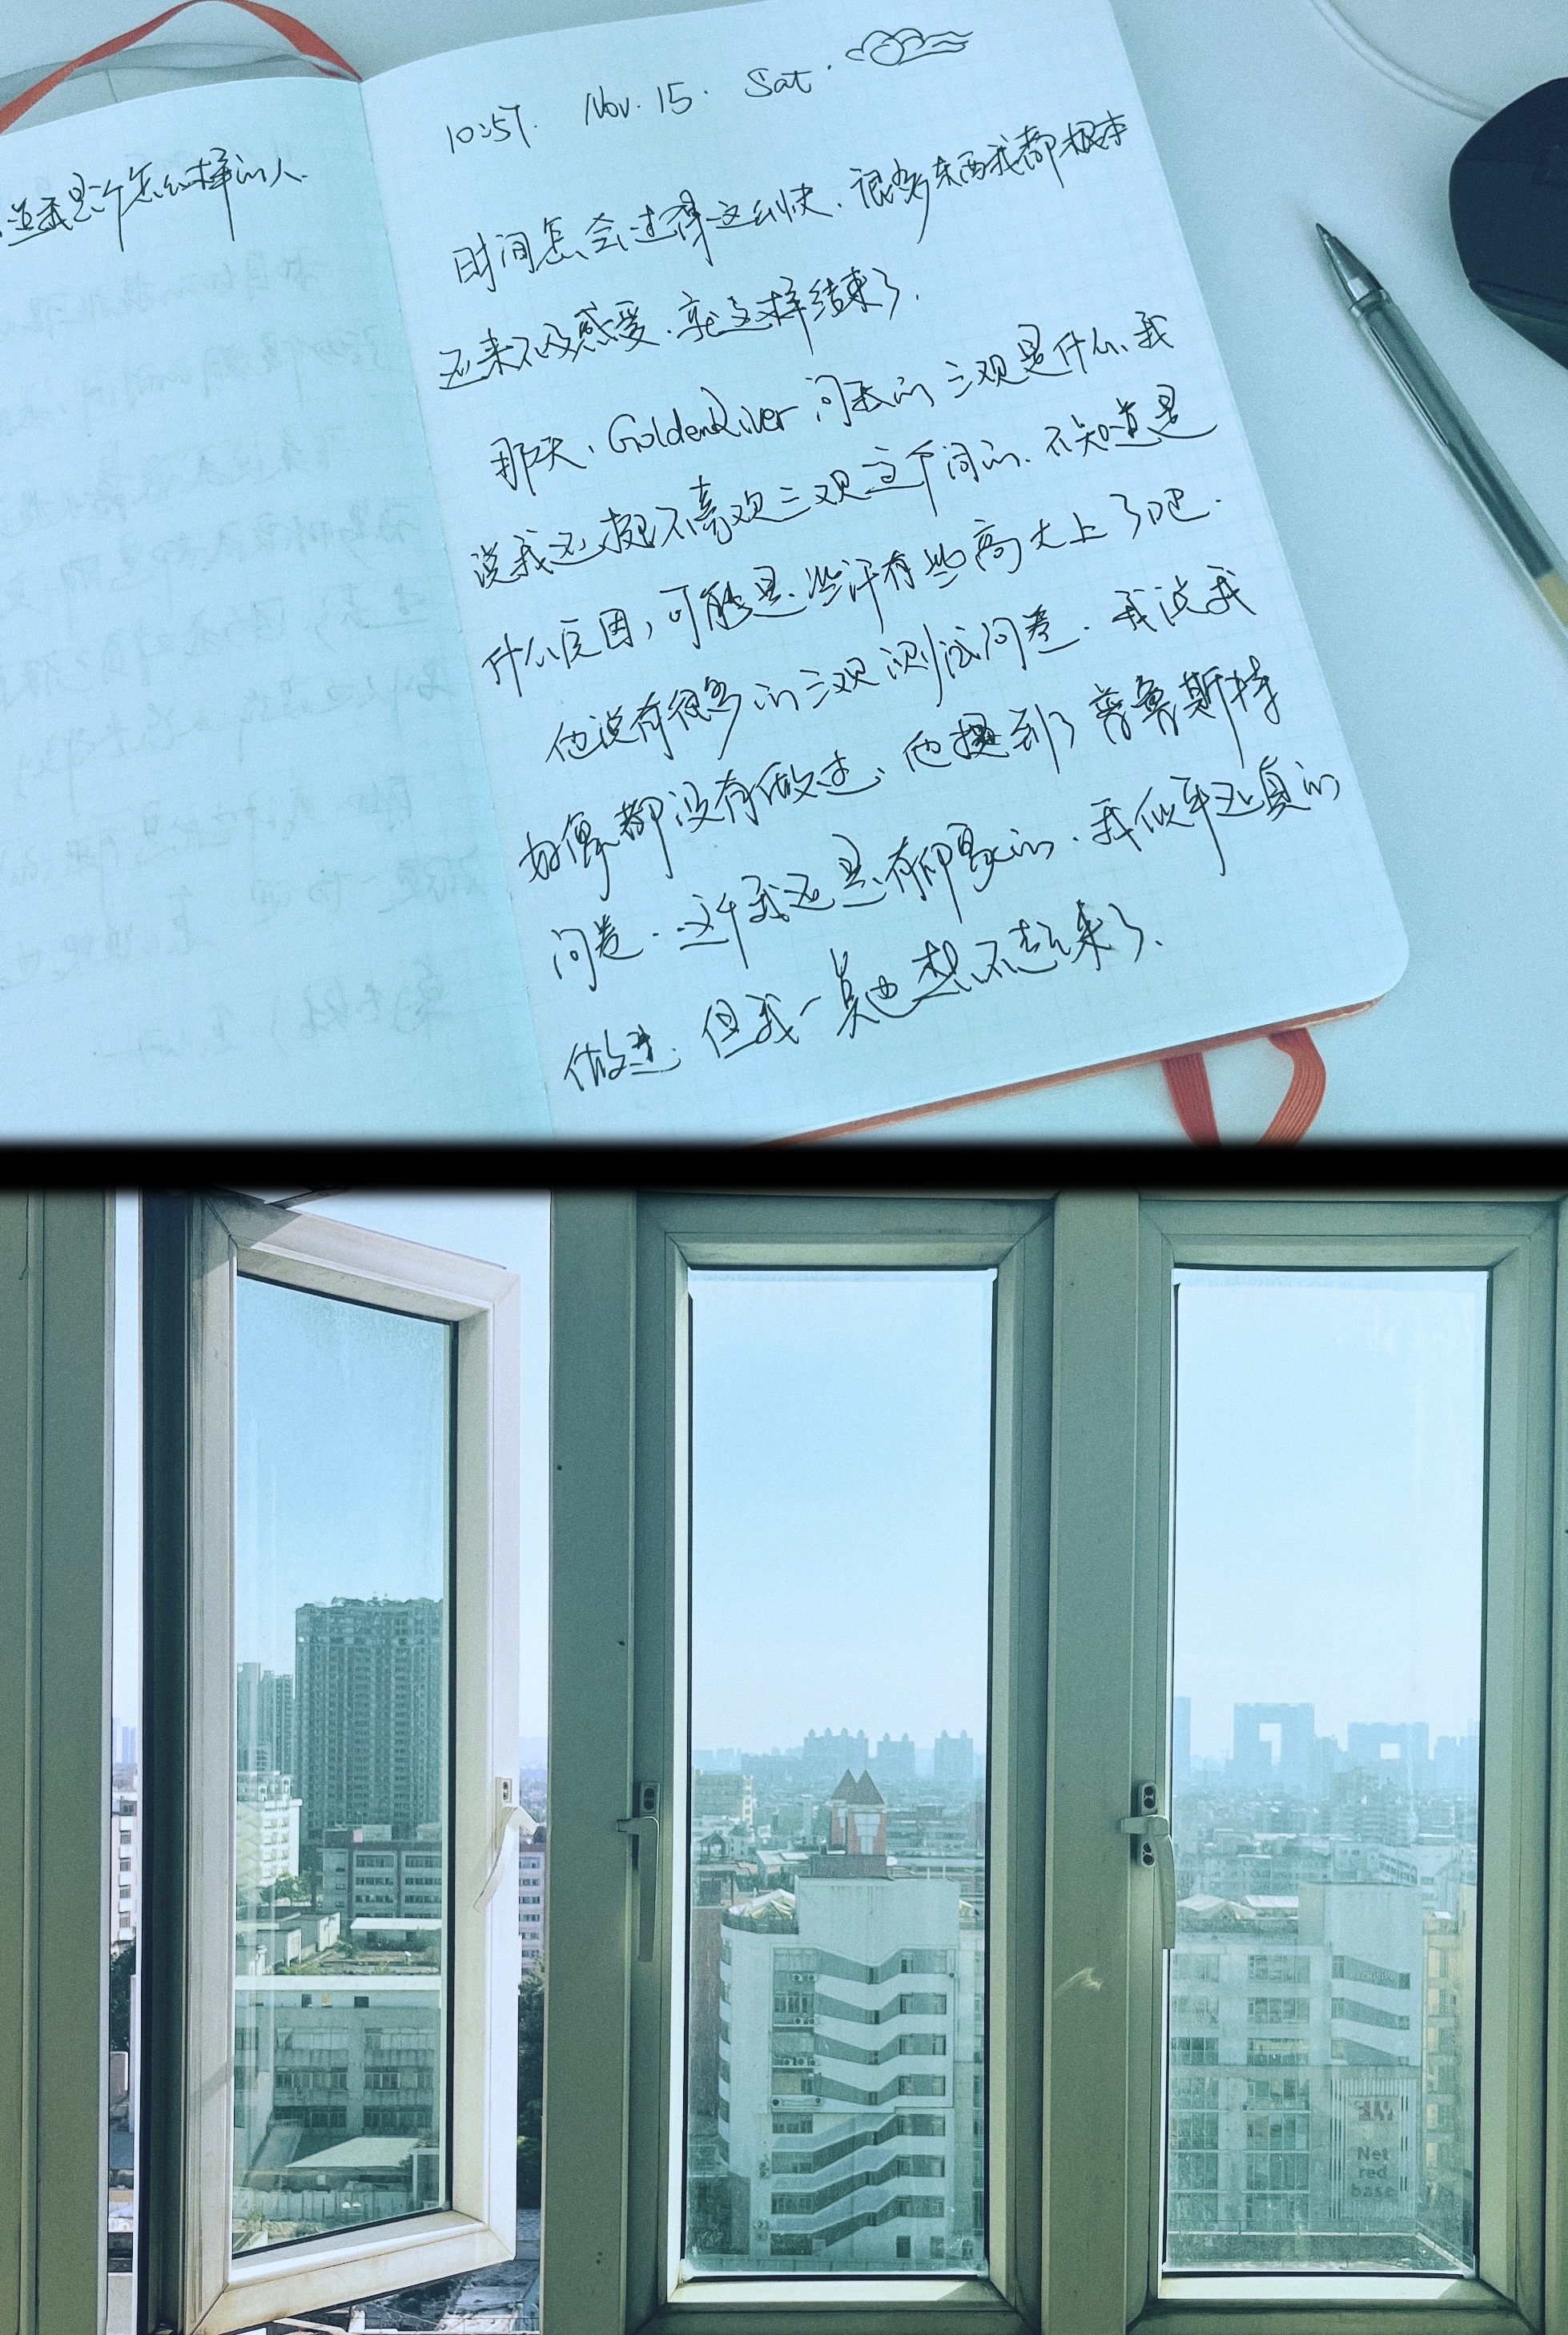 道我是个怎么样的人.
10:57. Nov. 15. Sat.
时间怎会过得这么快、很多东西我都根本
还来不及感受、就这样结束了.
那天、GoldenRiver 问我的三观是什么、我
说我还挺不喜欢三观这个词的、不知道是
什么原因，可能是、些许有些高大上了吧.
他说有很多的三观测试问卷. 我说我
好像都没有做过、他提到了普鲁斯特
问卷. 这个我还是有印象的. 我似乎还真的
做过. 但我一点也想不起来了.
Net
red
base